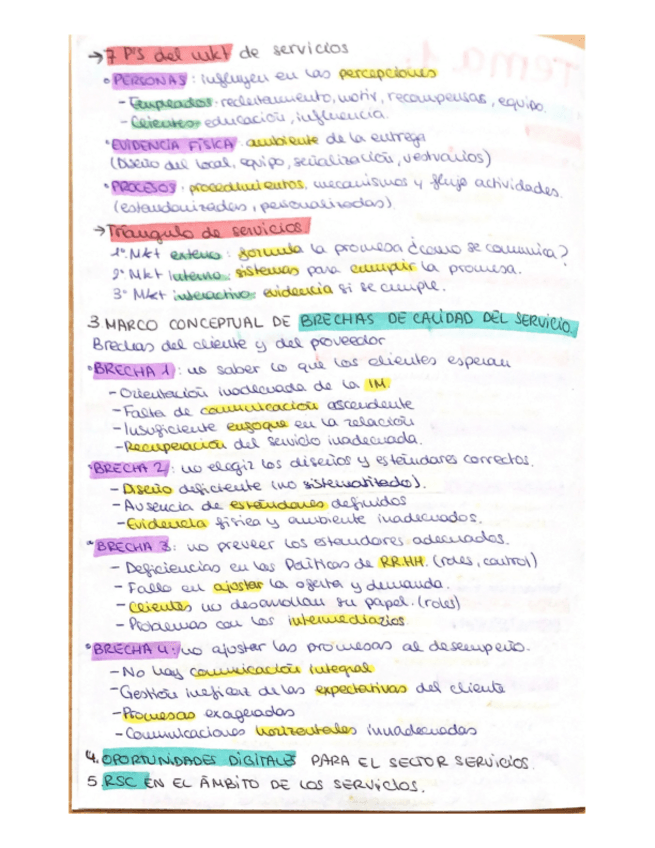 → 7 P'S del mkt de servicios
• PERSONAS: influyen en las percepciones
- Empleados: reclutamiento, motiv, recompensas, equipo.
- Clientes: educación, influencia.
• EVIDENCIA FÍSICA: ambiente de la entrega
(Diseño del local, equipo, señalización, vestuarios)
• PROCESOS: procedimientos, mecanismos y flujo actividades.
(estandarizadas, personalizadas)
→ Triángulo de servicios
1º Mkt externo: formula la promesa ¿cómo se comunica?
2º Mkt interno: sistemas para cumplir la promesa.
3º Mkt interactivo: evidencia si se cumple.
3. MARCO CONCEPTUAL DE BRECHAS DE CALIDAD DEL SERVICIO.
Brechas del cliente y del proveedor
• BRECHA 1: no saber lo que los clientes esperan
- Orientación inadecuada de la IM
- Falta de comunicación ascendente
- Insuficiente enfoque en la relación
- Recuperación del servicio inadecuada.
• BRECHA 2: no elegir los diseños y estándares correctos.
- Diseño deficiente (no sistematizado).
- Ausencia de estándares definidos
- Evidencia física y ambiente inadecuados.
• BRECHA 3: no preveer los estandares adecuados.
- Deficiencias en las Políticas de RR.HH. (roles, control)
- Fallo en ajustar la oferta y demanda.
- Clientes no desarrollan su papel. (roles)
- Problemas con los intermediarios
• BRECHA 4: no ajustar las promesas al desempeño.
- No hay comunicación integral
- Gestión ineficaz de las expectativas del cliente
- Promesas exageradas
- Comunicaciones horizontales inadecuadas
4. OPORTUNIDADES DIGITALES PARA EL SECTOR SERVICIOS.
5. RSC EN EL ÁMBITO DE LOS SERVICIOS.